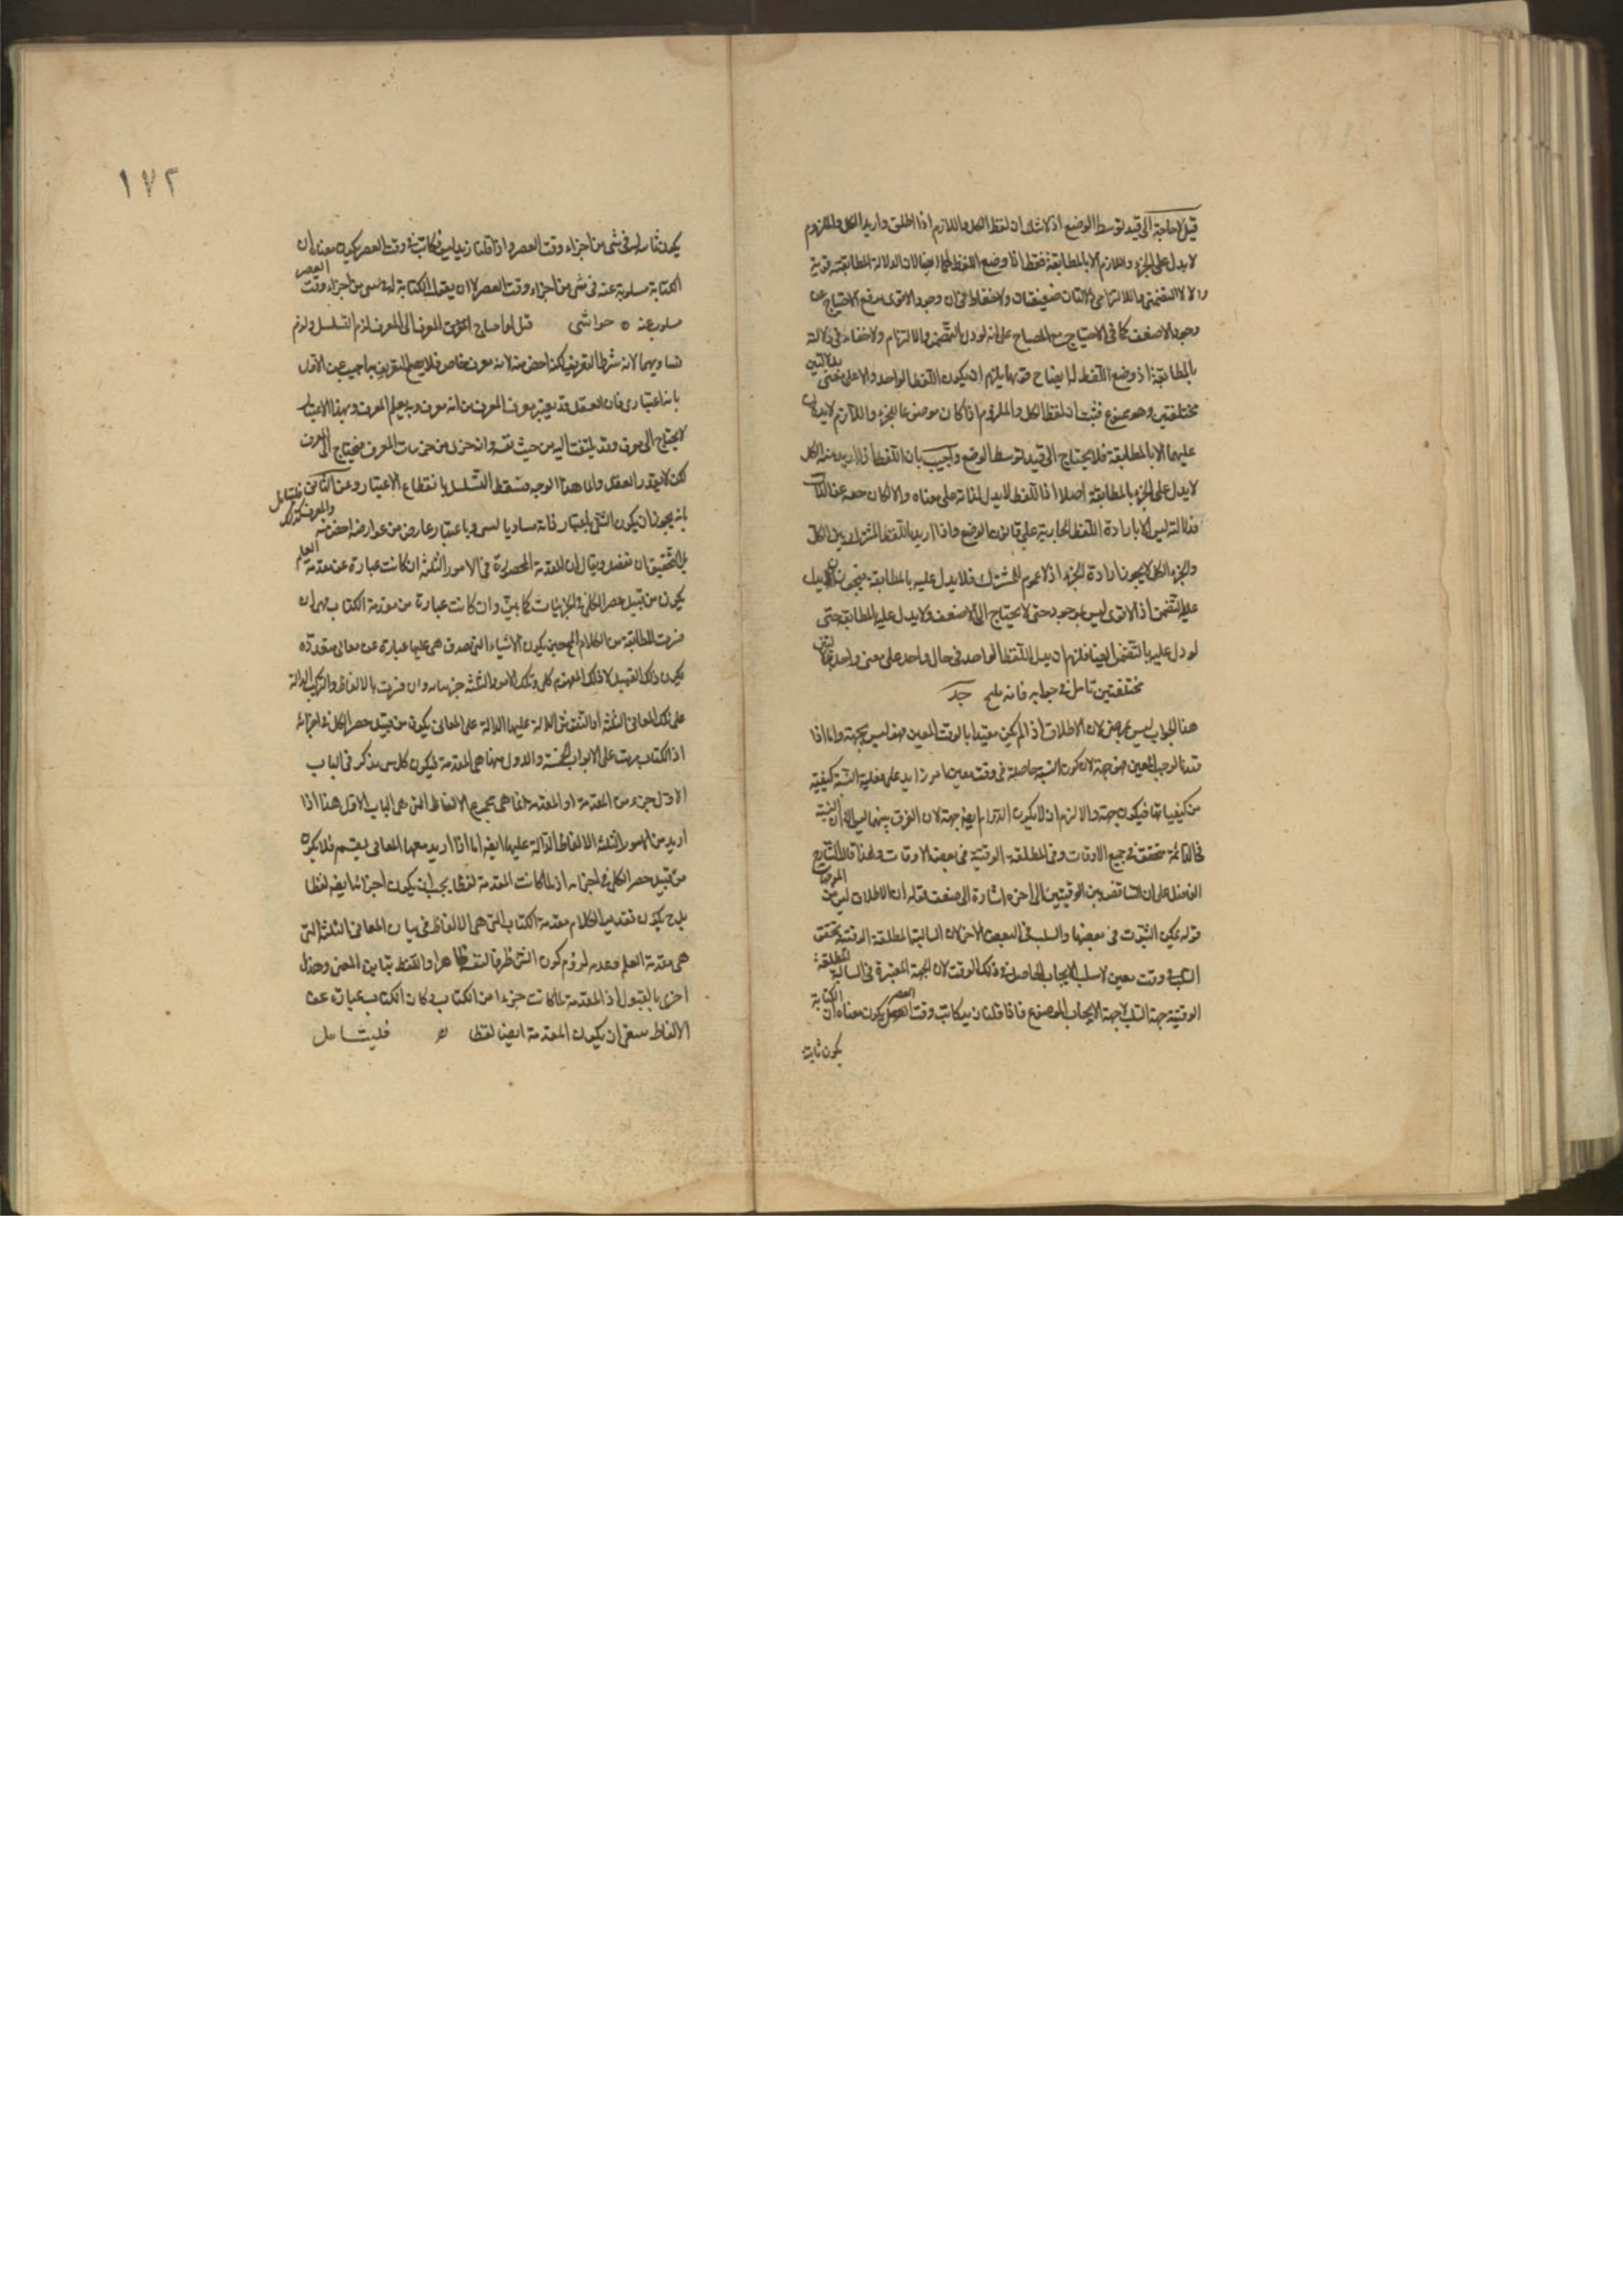 قيل لا حاجة الى قيد توسط الوضع اذ لا شك ان لفظ الكل واللازم اذا اطلق واريد الكل والملزوم
لا يدل على الجزء واللازم الا بالمطابقة فقط اذا وضع اللفظ لهما ايضا لان الدلالة المطابقة قوية
والتضمنى والالتزامى دلالتان ضعيفتان ولا خفاء فى ان وجود الاقوى يدفع الاحتياج عن
وجود الاضعف كما فى الاحتياج مع المصباح على انه لو دل بالتضمن والالتزام ولا خفاء فى دلالته
بالمطابقة اذ وضع اللفظ لها ايضا ح يلزم ان يكون اللفظ الواحد دالا على معنى بدلالتين
مختلفتين وهو ممنوع فثبت ان لفظ الكل والملزوم اذا كان موضوعا للجزء واللازم لا يدلان
عليهما الا بالمطابقة فلا يحتاج الى قيد توسط الوضع واجيب بان اللفظ اذا اريد منه الكل
لا يدل على الجزء بالمطابقة اصلا اذ اللفظ لا يدل لذاته على معناه والا لكان
فدلالته ليس الا بارادة اللافظ الجارية على قانون الوضع واذا اريد باللفظ المشترك بين الكل
والجزء الكل لا يجوز ارادة الجزء اذ لا عموم للمشترك فلا يدل عليه بالمطابقة فيجوز ان يدل
عليه بالتضمن اذ الاقوى ليس بموجود حتى لا يحتاج الى الاضعف ولا يدل عليه بالمطابقة حتى
لو دل عليه بالتضمن ايضا فلزم ان يدل اللفظ الواحد فى حال واحد على معنى واحد
مختلفتين تامل فى جوابه فانه مليح جدا
هذا الجواب ليس بمرضى لان الاطلاق اذا لم يكن مقيدا بالوقت المعين فهو ليس بجهة واما اذا
قيد بالوقت المعين فهو جهة لان كون النسبة حاصلة فى وقت معين امر زايد على فعلية النسبة كيفية
من كيفياتها فيكون جهة والا لزم ان لا يكون الدوام ايضا جهة لان الفرق بينهما ليس الا ان النسبة
فى الدائمة متحققة فى جميع الاوقات وفى المطلقة الوقتية فى بعض الاوقات ولهذا قال الشارح
الفاضل على ان التناقض بين الوقتيتين الى اخره اشارة الى ضعف قوله ان الاطلاق ليس من الموجهات
قوله يمكن الثبوت فى بعضها والسلب فى البعض الاخر لان السالبة المطلقة الوقتية تحقق
السلب فى وقت معين لا سلب الايجاب الحاصل فى ذلك الوقت لان الجهة المعتبرة فى السالبة المطلقة
الوقتية جهة السلب لا جهة الايجاب المصنوع فاذا قلنا زيد كاتب وقت العصر يكون معناه ان الكتابة
يكون ثابتة
يكون ثابتة له فى شئ من اجزاء وقت العصر واذا قلنا زيد ليس بكاتب فى وقت العصر يكون معناه ان
الكتابة مسلوبة عنه فى شئ من اجزاء وقت العصر لا ان يقول الكتابة له فى شئ من اجزاء وقت العصر
مسلوب عنه ٥ حواشى قيل لو احتاج المعرف الى المعرف لزم التسلسل ولزم
تساويهما لانه شرط التعريف لكنه اخص منه لانه معرف خاص فلا يصح التعريف به اجيب عن الاول
بانه اعتبارى فان العقل قد يعتبر معرف المعرف من انه معرف وبه يعلم المعرف وبهذا الاعتبار
لا يحتاج الى معرف وقد يلتفت اليه من حيث نفسه وانه جزئى من جزئيات المعرف فيحتاج الى المعرف
لكن لا يقدر العقل دائما هذا الوجه فسقط التسلسل بانقطاع الاعتبار وعن الثانى فليتأمل
بانه يجوز ان يكون الشئ باعتبار ذاته مساويا لشئ وباعتبار عارض من عوارضه اخص منه والمعرف كذلك
التحقيق ان نفصل ويقال ان المقدمة المحصورة فى الامور الثلثة ان كانت عبارة عن مقدمة العلم
يكون من قبيل حصر الكلى فى الجزئيات كما بين وان كانت عبارة من مقدمة الكتاب
فسرت للطائفة من الكلام يكون الاشياء التى صدق هى عليها عبارة عن معانى متعددة
يكون ذلك القبيل لا ذلك المفهوم كلى وتلك الامور الثلثة جزئياته وان فسرت بالالفاظ والتركيب الدالة
على تلك المعانى الثلثة او النقوش الدالة عليها الدالة على المعانى يكون من قبيل حصر الكل فى اجزائه
اذ الكتاب مرتب على الابواب الخمسة والاول منها هى المقدمة فيكون كل من يذكر فى الباب
الاول جزء من المقدمة او المقدمة انما هى مجموع الالفاظ التى هى الباب الاول هذا اذا
اريد من الامور الثلثة الالفاظ الدالة عليها ايضا اما اذا اريد معها المعانى يعم فلا يكون
من قبيل حصر الكلى فى اجزائه اذ لما كانت المقدمة لفظا يجب ان يكون اجزائها ايضا لفظا
بل ح يكون تقدير الكلام مقدمة الكتاب التى هى الالفاظ فى بيان المعانى الثلثة التى
هى مقدمة العلم وعدم لزوم كون الشئ ظرفا لنفسه ظاهر واللفظ تباين المعنى وهذا
احرى بالقبول اذ المقدمة لما كانت جزءا من الكتاب وكان الكتاب عبارة عن
الالفاظ ينبغى ان يكون المقدمة ايضا لفظا ٥ فليتأمل
١٧٢